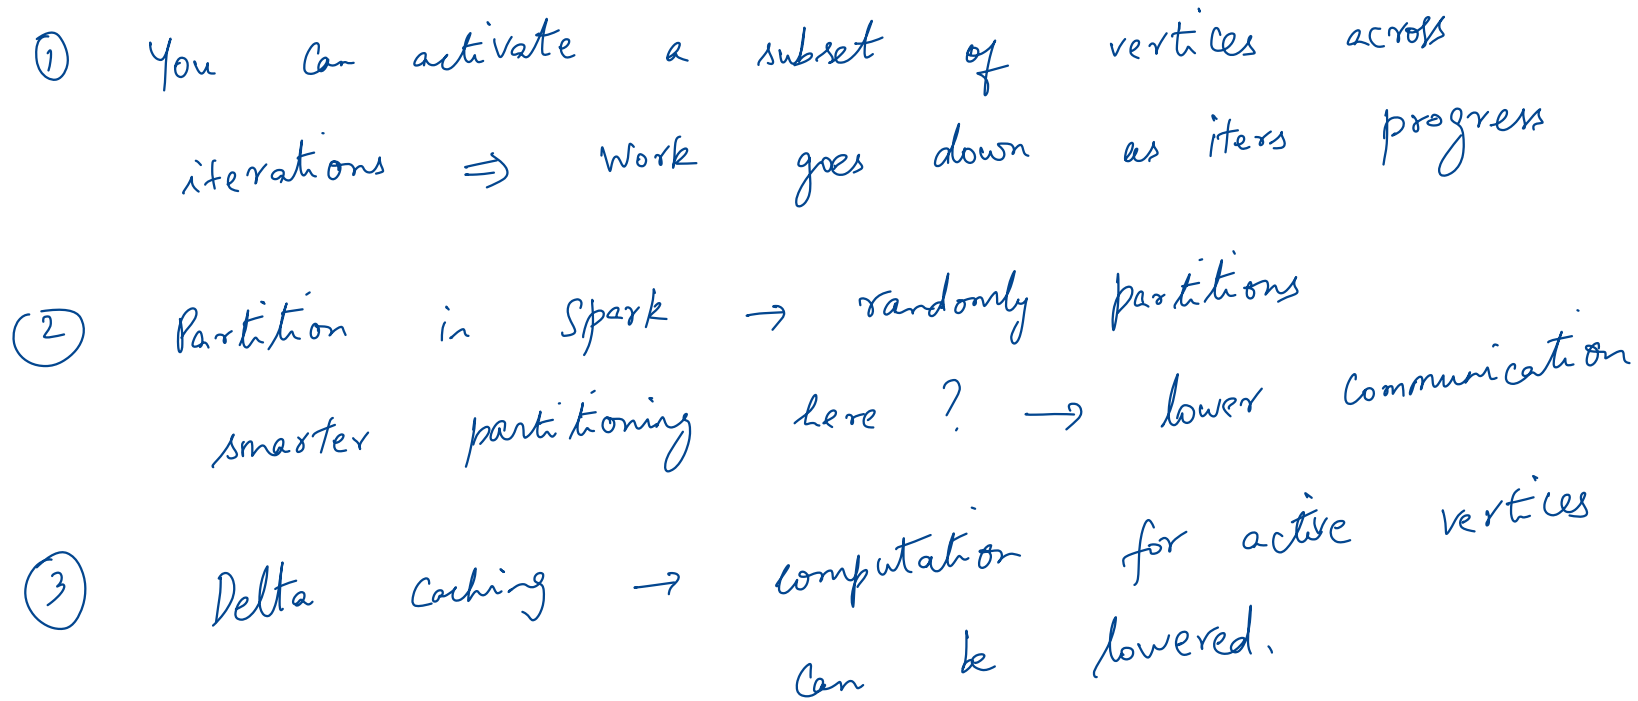 ① You can activate a subset of vertices across
iterations ⇒ Work goes down as iters progress
② Partition in Spark → randomly partitions
smarter partitioning here ? → lower communication
③ Delta Caching → computation for active vertices
can be lowered.